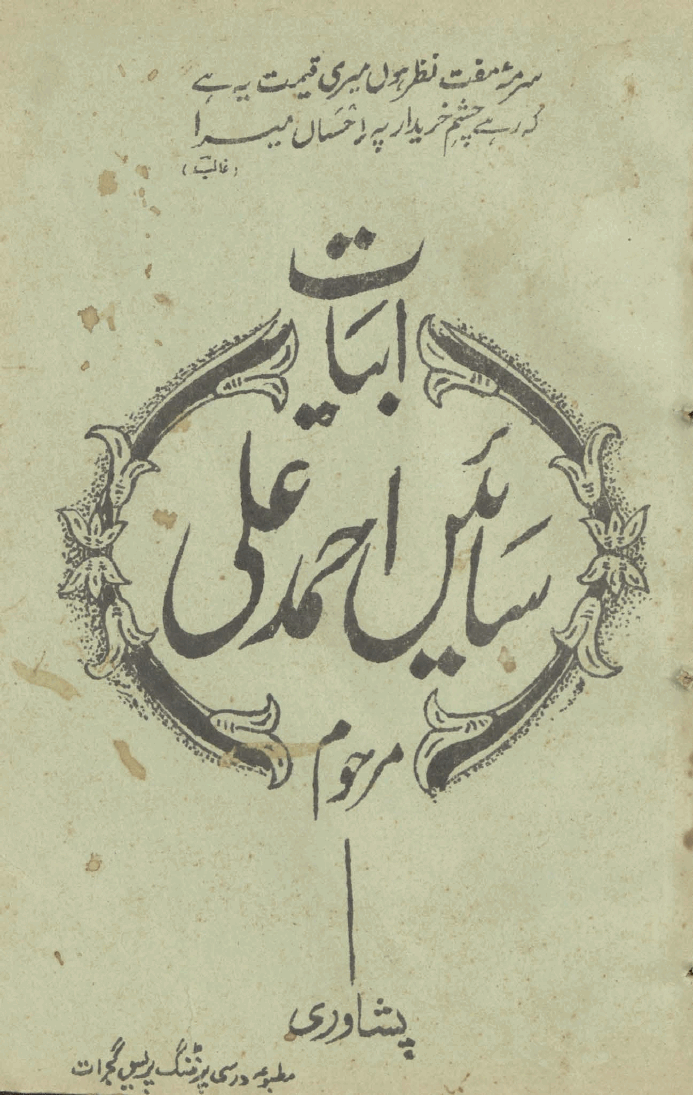 سرمۂ مفت نظر ہوں میری قیمت یہ ہے
کہ رہے چشمِ خریدار پہ احساں میرا
(غالبؔ)
ابیات
سائیں احمد علی
مرحوم
پشاوری
مطبوعہ درسی پرنٹنگ پریس گجرات